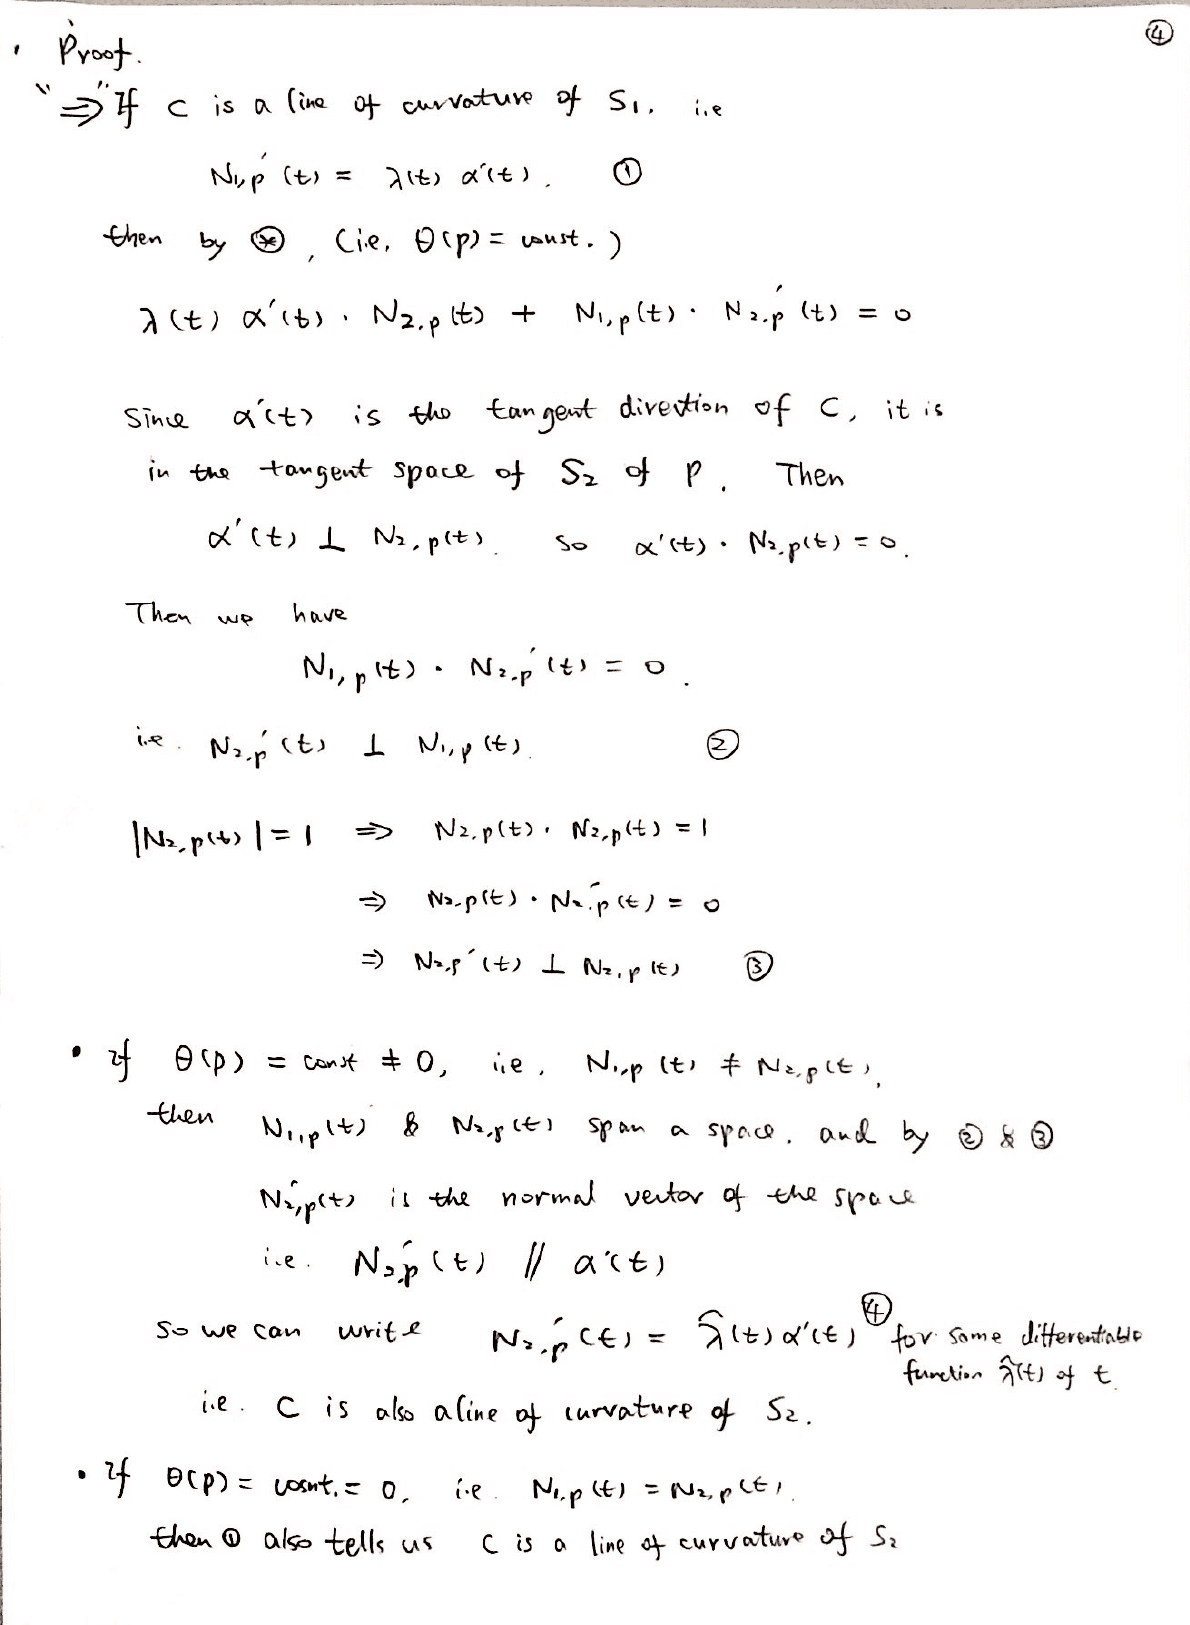 ④
· Proof.
"⇒" If C is a line of curvature of S₁, i.e
N₁,p'(t) = λ(t) α'(t). ①
then by ⊛, (i.e, θ(p) = const.)
λ(t) α'(t) · N₂,p(t) + N₁,p(t) · N₂,p'(t) = 0
Since α'(t) is the tangent direction of C, it is
in the tangent space of S₂ of p. Then
α'(t) ⊥ N₂,p(t). So α'(t) · N₂,p(t) = 0.
Then we have
N₁,p(t) · N₂,p'(t) = 0.
i.e. N₂,p'(t) ⊥ N₁,p(t). ②
|N₂,p(t)| = 1 ⇒ N₂,p(t) · N₂,p(t) = 1
⇒ N₂,p(t) · N₂,p'(t) = 0
⇒ N₂,p'(t) ⊥ N₂,p(t) ③
• If θ(p) = const ≠ 0, i.e, N₁,p(t) ≠ N₂,p(t),
then N₁,p(t) & N₂,p(t) span a space, and by ② & ③
N₂,p'(t) is the normal vector of the space
i.e. N₂,p'(t) // α'(t)
So we can write N₂,p'(t) = λ̂(t) α'(t) ④ for some differentiable
function λ̂(t) of t.
i.e. C is also a line of curvature of S₂.
• If θ(p) = cosnt. = 0, i.e. N₁,p(t) = N₂,p(t).
then ① also tells us C is a line of curvature of S₂